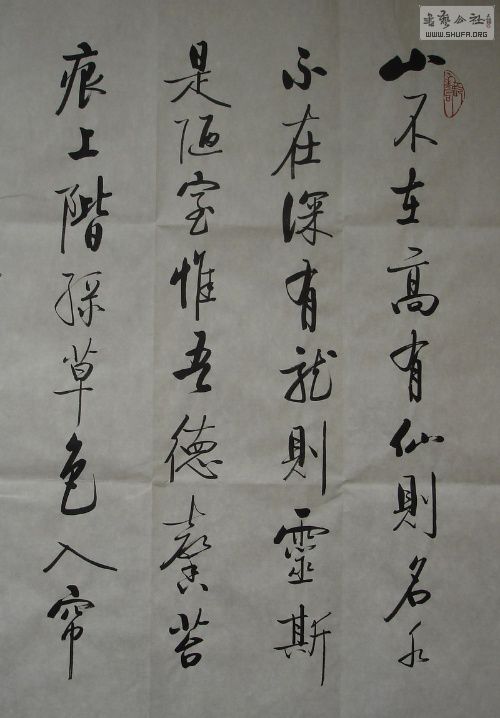 山不在高有仙則名水
不在深有龙則靈斯
是陋室惟吾德馨苔
痕上階綠草色入帘
書藝公社
WWW.SHUFA.ORG